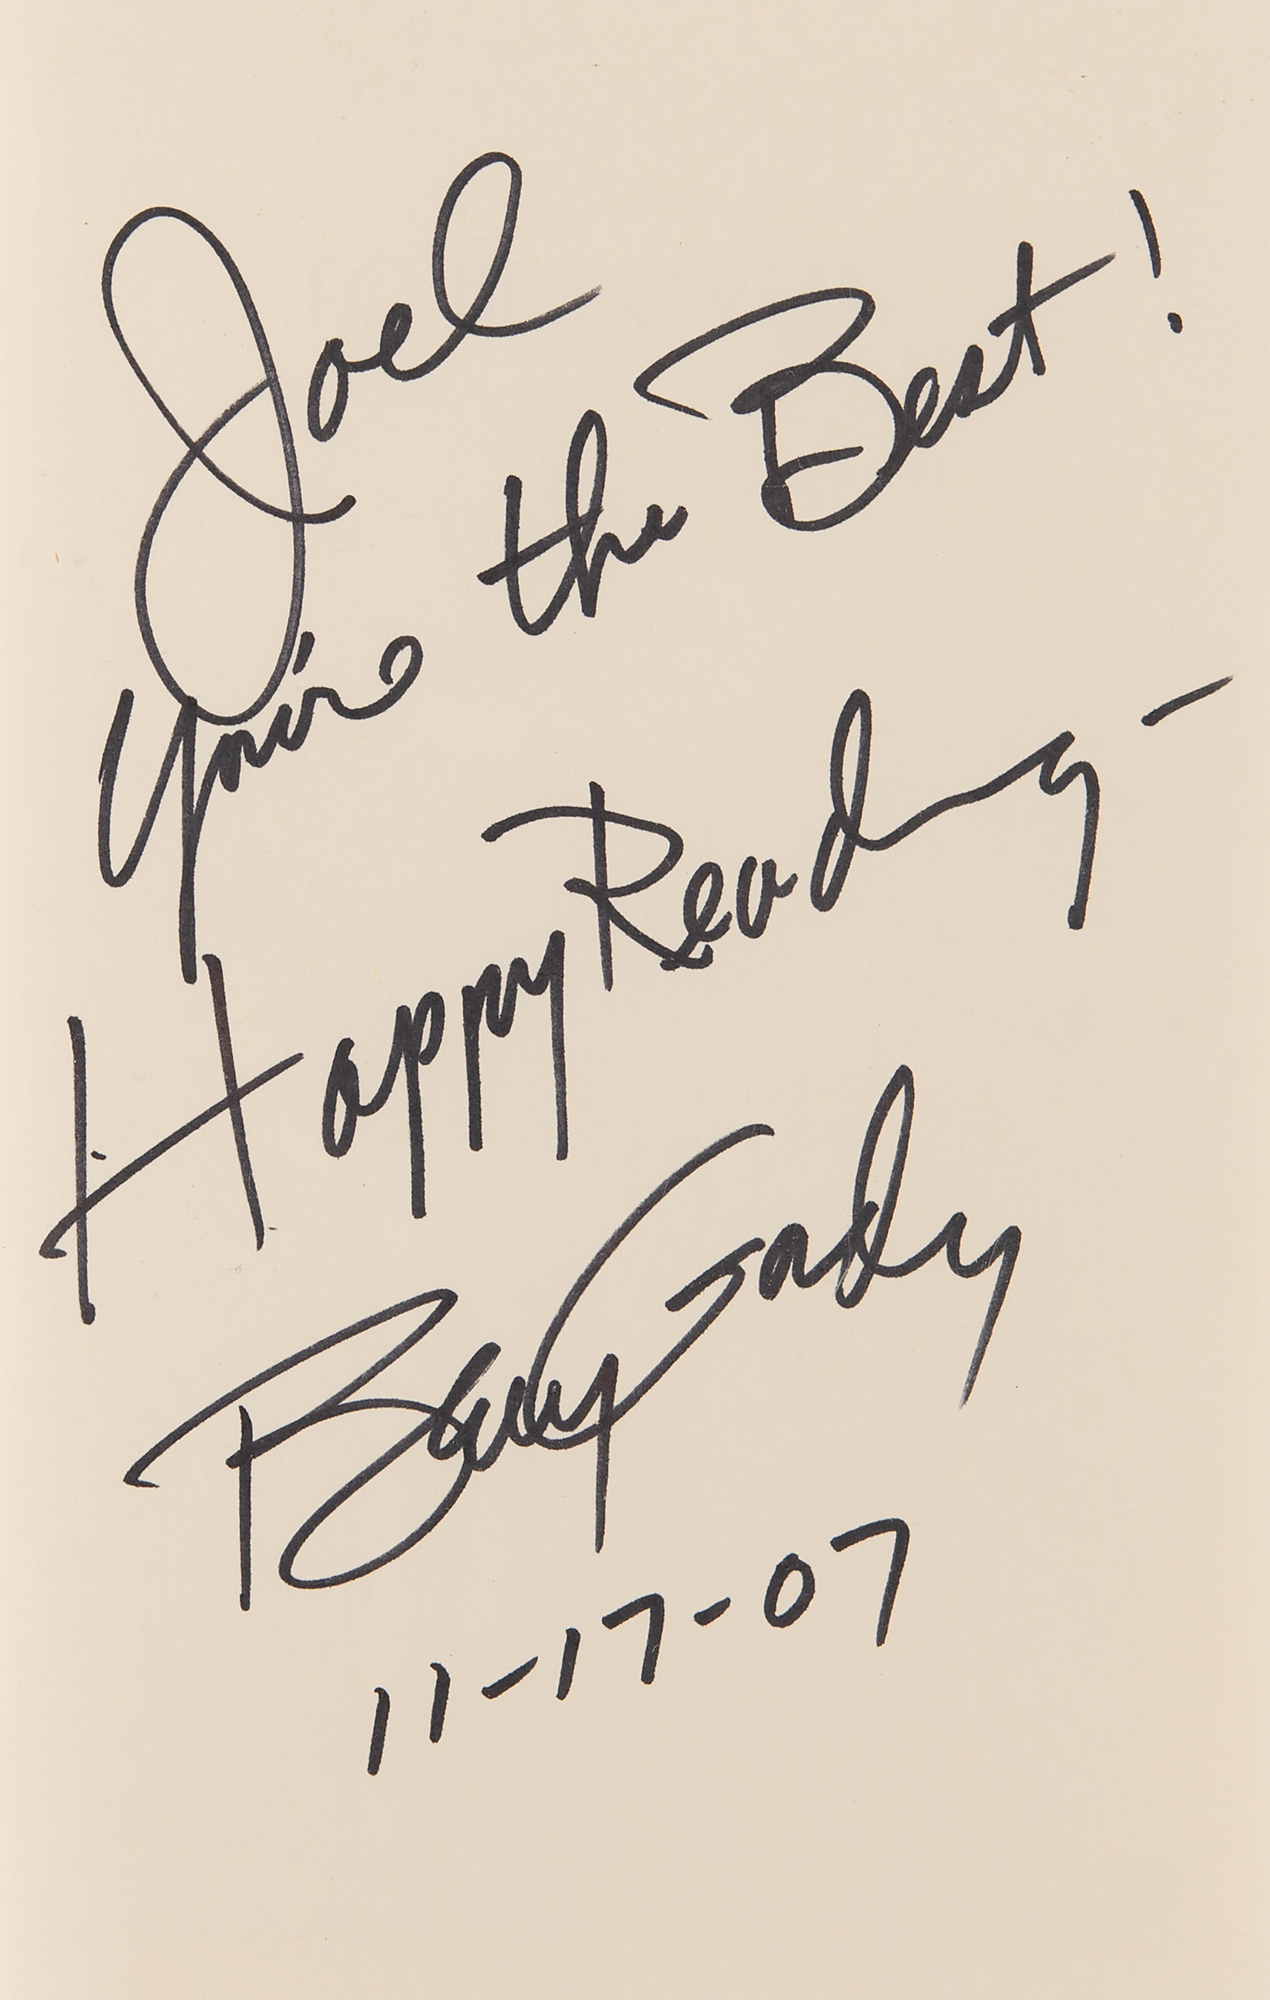 Joel
You're the Best!
Happy Reading -
Berry Gordy
11-17-07